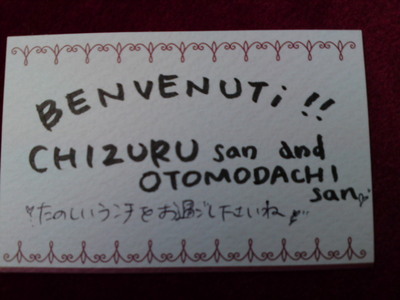 BENVENUTi!!
CHIZURU san and
OTOMODACHI
san
たのしいランチをお過ごし下さいね